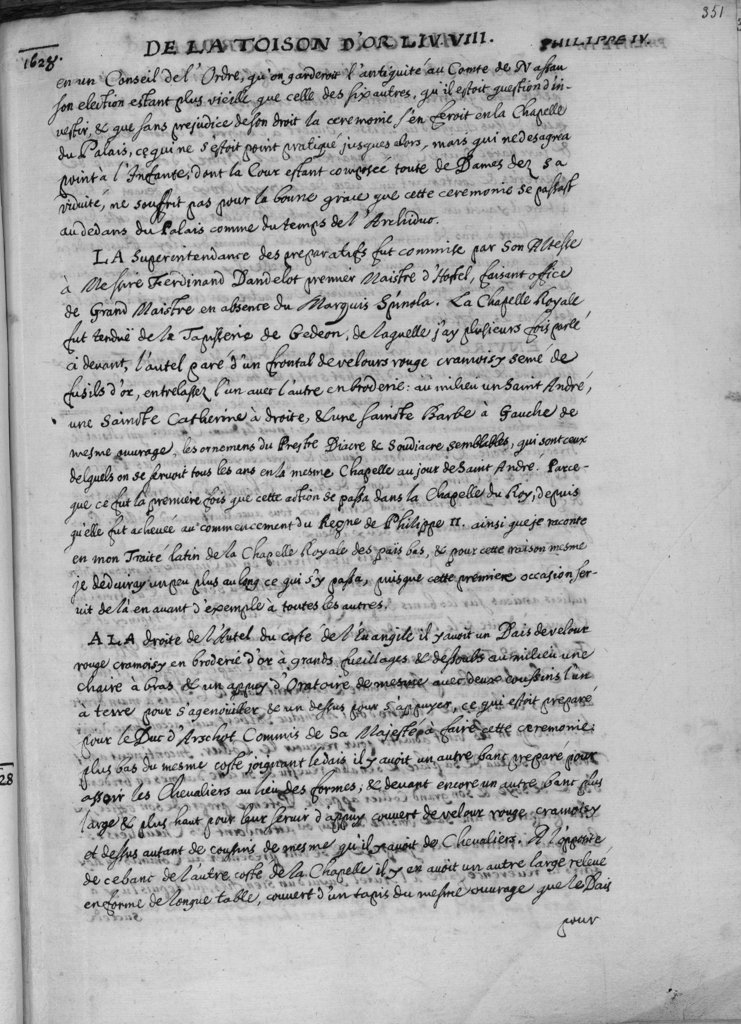 351
DE LA TOISON D'OR LIV. VIII. PHILIPPE IV.
1628.
en un Conseil de l'Ordre, qu'on garderoit l'antiquité au Comte de Nassau
son election estant plus vieille que celle des six autres, qu'il estoit question d'in-
vestir, & que sans prejudice de son droit la ceremonie s'en feroit en la Chapelle
du Palais, ce qui ne s'estoit point pratiqué jusques alors, mais qui ne desagrea
point à l'Infante, dont la Cour estant composée toute de Dames dez sa
viduité, ne souffrit pas pour la bonne grace que cette ceremonie se passast
au dedans du Palais comme du temps de l'Archiduc.
LA Superintendance des preparatifs fut commise par Son Altesse
à Messire Ferdinand Dandelot premier Maistre d'Hostel, faisant office
de Grand Maistre en absence du Marquis Spinola. La Chapelle Royale
fut tenduë de la Tapisserie de Gedeon, de laquelle j'ay plusieurs fois parlé
cidevant, l'autel paré d'un frontal de velours rouge cramoisy semé de
fusils d'or, entrelassez l'un avec l'autre en broderie: au milieu un Saint André,
une Saincte Catherine à droite, & une saincte Barbe à Gauche de
mesme ouvrage, les ornemens du Prestre Diacre & Soudiacre semblables, qui sont ceux
desquels on se servoit tous les ans en la mesme Chapelle au jour de Saint André. Parce-
que ce fut la premiere fois que cette action se passa dans la Chapelle du Roy, depuis
qu'elle fut achevée au commencement du Regne de Philippe II. ainsi que je raconte
en mon Traité latin de la Chapelle Royale des païs bas, & pour cette raison mesme
je deduiray un peu plus au long ce qui s'y passa, puisque cette premiere occasion ser-
vit de là en avant d'exemple à toutes les autres.
A LA droite de l'Autel du costé de l'Euangile il y avoit un Dais de velour
rouge cramoisy en broderie d'or à grands fueillages & dessoubs au milieu une
chaire à bras & un appuy d'Oratoire de mesme avec deux coussins l'un
à terre pour s'agenouiller & un dessus pour s'appuyer, ce qui estoit preparé
pour le Duc d'Arschot Commis de Sa Majesté à faire cette ceremonie:
plus bas du mesme costé joignant le dais il y avoit un autre banc preparé pour
assoir les Chevaliers au lieu des formes; & devant encore un autre banc plus
28
large & plus haut pour leur servir d'appuy couvert de velour rouge cramoisy
et dessus autant de cousins de mesme qu'il y avoit de Chevaliers. A l'opposite
de ce banc de l'autre coste de la Chapelle il y en avoit un autre large relevé
en forme de longue table, couvert d'un tapis du mesme ouvrage que le Dais
pour